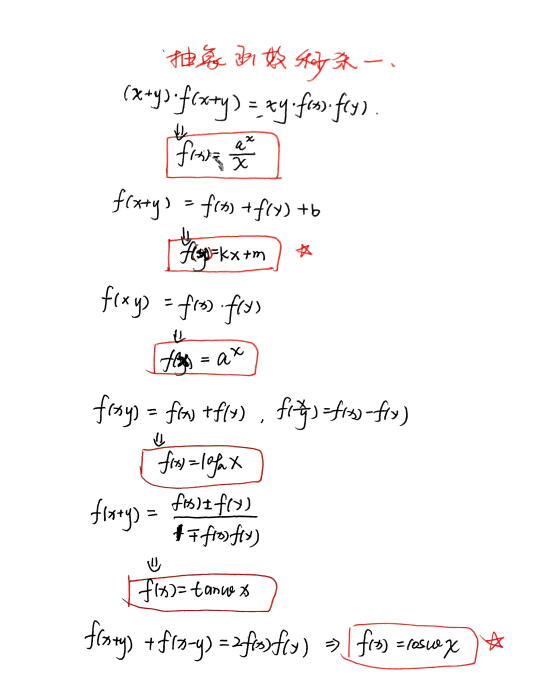 抽象函数秒杀一.
(x+y)·f(x+y)=xy·f(x)·f(y).
⇓
f(x)=a^x/x
f(x+y) = f(x)+f(y)+b
⇓
f(x)=kx+m ☆
f(xy) = f(x)·f(y)
⇓
f(x) = a^x
f(xy) = f(x)+f(y), f(x/y)=f(x)-f(y)
⇓
f(x)=log_a x
f(x+y) = (f(x)±f(y))/(1∓f(x)f(y))
⇓
f(x)=tanωx
f(x+y)+f(x-y)=2f(x)f(y) ⇒ f(x)=cosωx ☆